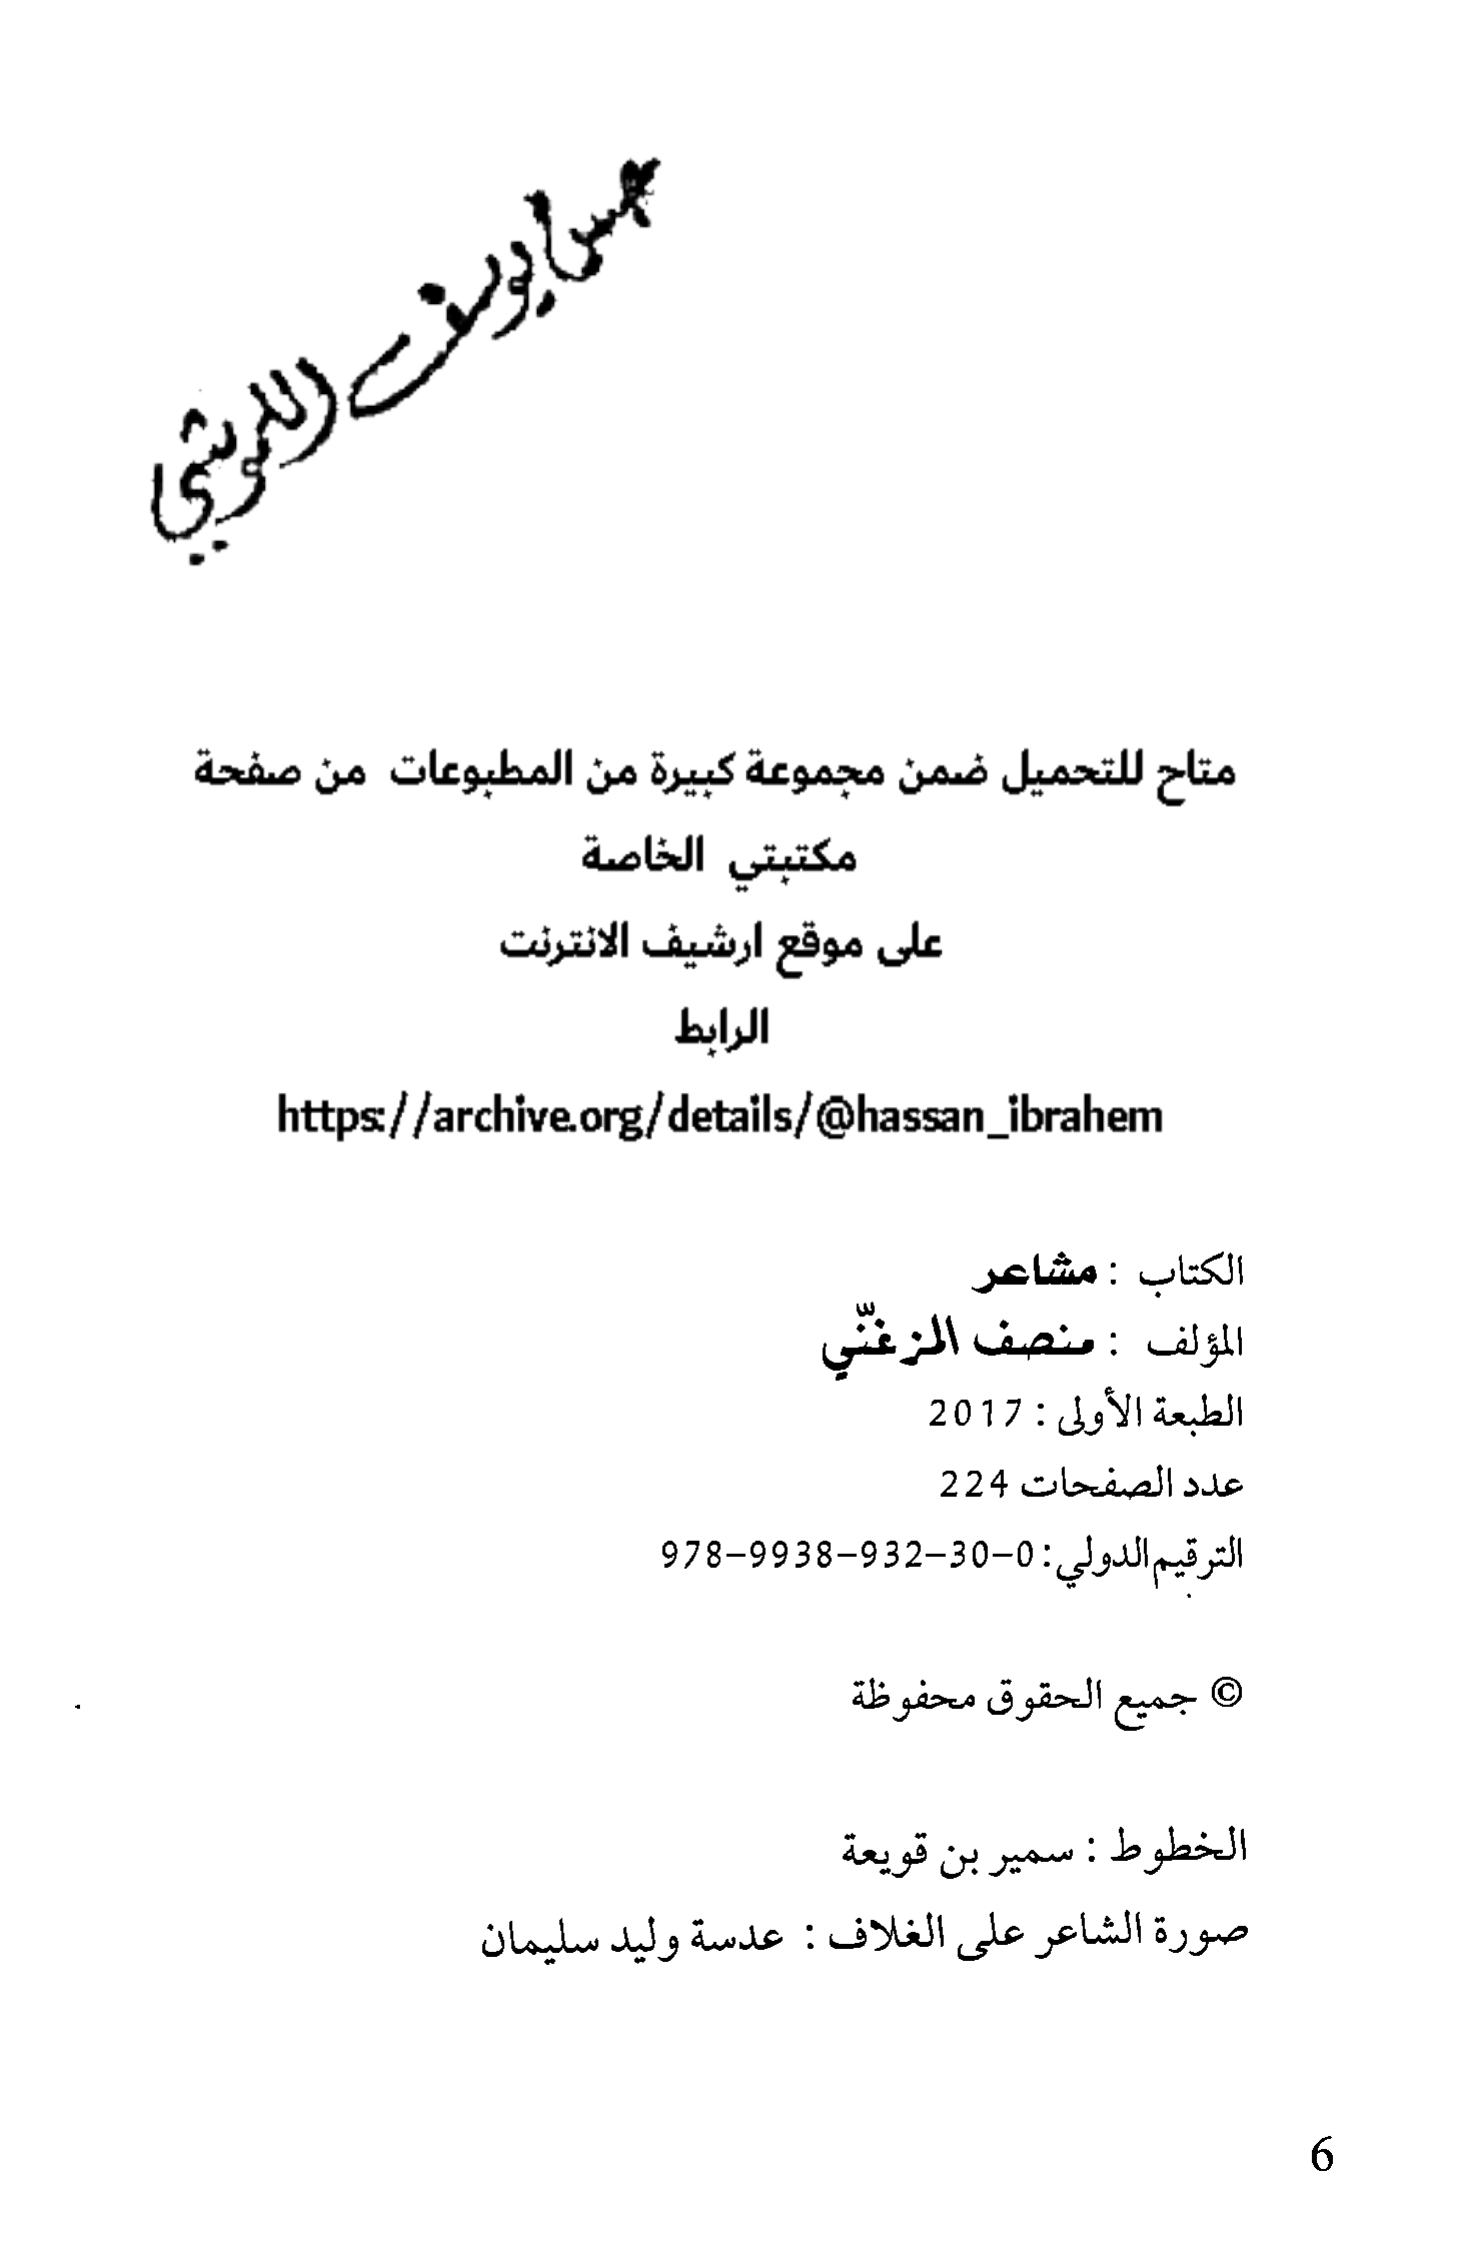 متاح للتحميل ضمن مجموعة كبيرة من المطبوعات من صفحة
مكتبتي الخاصة
على موقع ارشيف الانترنت
الرابط
https://archive.org/details/@hassan_ibrahem
الكتاب : مشاعر
المؤلف : منصف المزغنّي
الطبعة الأولى : 2017
عدد الصفحات 224
الترقيم الدولي: 978-9938-932-30-0
© جميع الحقوق محفوظة
الخطوط : سمير بن قويعة
صورة الشاعر على الغلاف : عدسة وليد سليمان
6